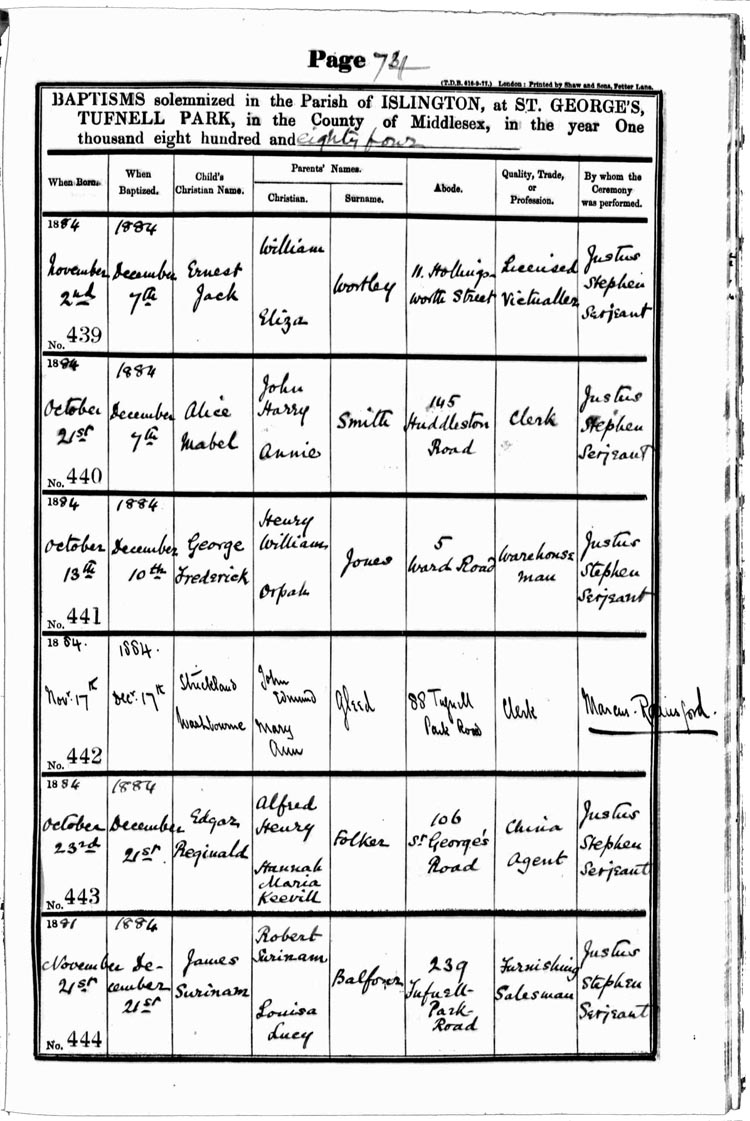 Page 74
(T.D.B. 616-9-77.) London: Printed by Shaw and Sons, Fetter Lane.
BAPTISMS solemnized in the Parish of ISLINGTON, at ST. GEORGE'S,
TUFNELL PARK, in the County of Middlesex, in the year One
thousand eight hundred and eighty four
When Born.
When
Baptized.
Child's
Christian Name.
Parents' Names.
Christian.
Surname.
Abode.
Quality, Trade,
or
Profession.
By whom the
Ceremony
was performed.
1884
November
2nd
No. 439
1884
December
7th
Ernest
Jack
William
Eliza
Wortley
11. Hollings-
worth Street
Licensed
Victualler
Justus
Stephen
Serjeant
1884
October
21st
No. 440
1884
December
7th
Alice
Mabel
John
Harry
Annie
Smith
145
Huddleston
Road
Clerk
Justus
Stephen
Serjeant
1884
October
13th
No. 441
1884
December
10th
George
Frederick
Henry
William
Orpah
Jones
5
Ward Road
Warehouse
man
Justus
Stephen
Serjeant
1884.
Novr. 17th
No. 442
1884.
Decr. 17th
Strickland
Washbourne
John
Edmund
Mary
Ann
Gleed
88 Tufnell
Park Road
Clerk
Marcus Rainsford.
1884
October
23rd
No. 443
1884
December
21st
Edgar
Reginald
Alfred
Henry
Hannah
Maria
Keevill
Folker
106
St George's
Road
China
Agent
Justus
Stephen
Serjeant
1881
November
21st
No. 444
1884
De-
cember
21st
James
Surinam
Robert
Surinam
Louisa
Lucy
Balfour
239
Tufnell-
Park-
Road
Furnishing
Salesman
Justus
Stephen
Serjeant